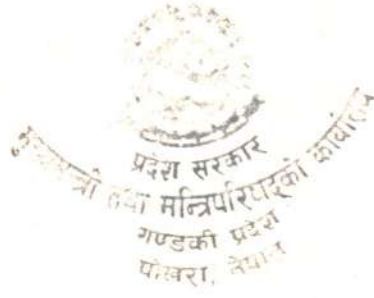 प्रदेश सरकार
मुख्यमन्त्री तथा मन्त्रिपरिषद्को कार्यालय
गण्डकी प्रदेश
पोखरा, नेपाल